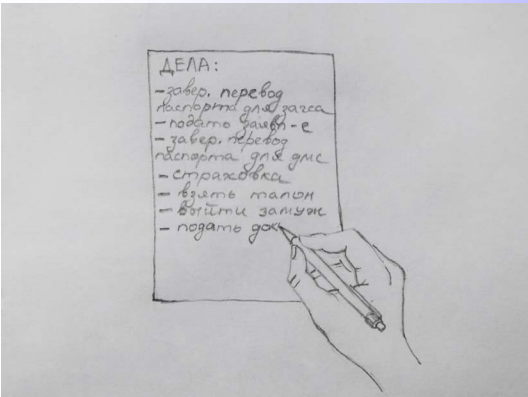 ДЕЛА:
-завер. перевод
паспорта для загса
-подать заявл-е
-завер. перевод
паспорта для дмс
-страховка
- взять талон
- выйти замуж
- подать док